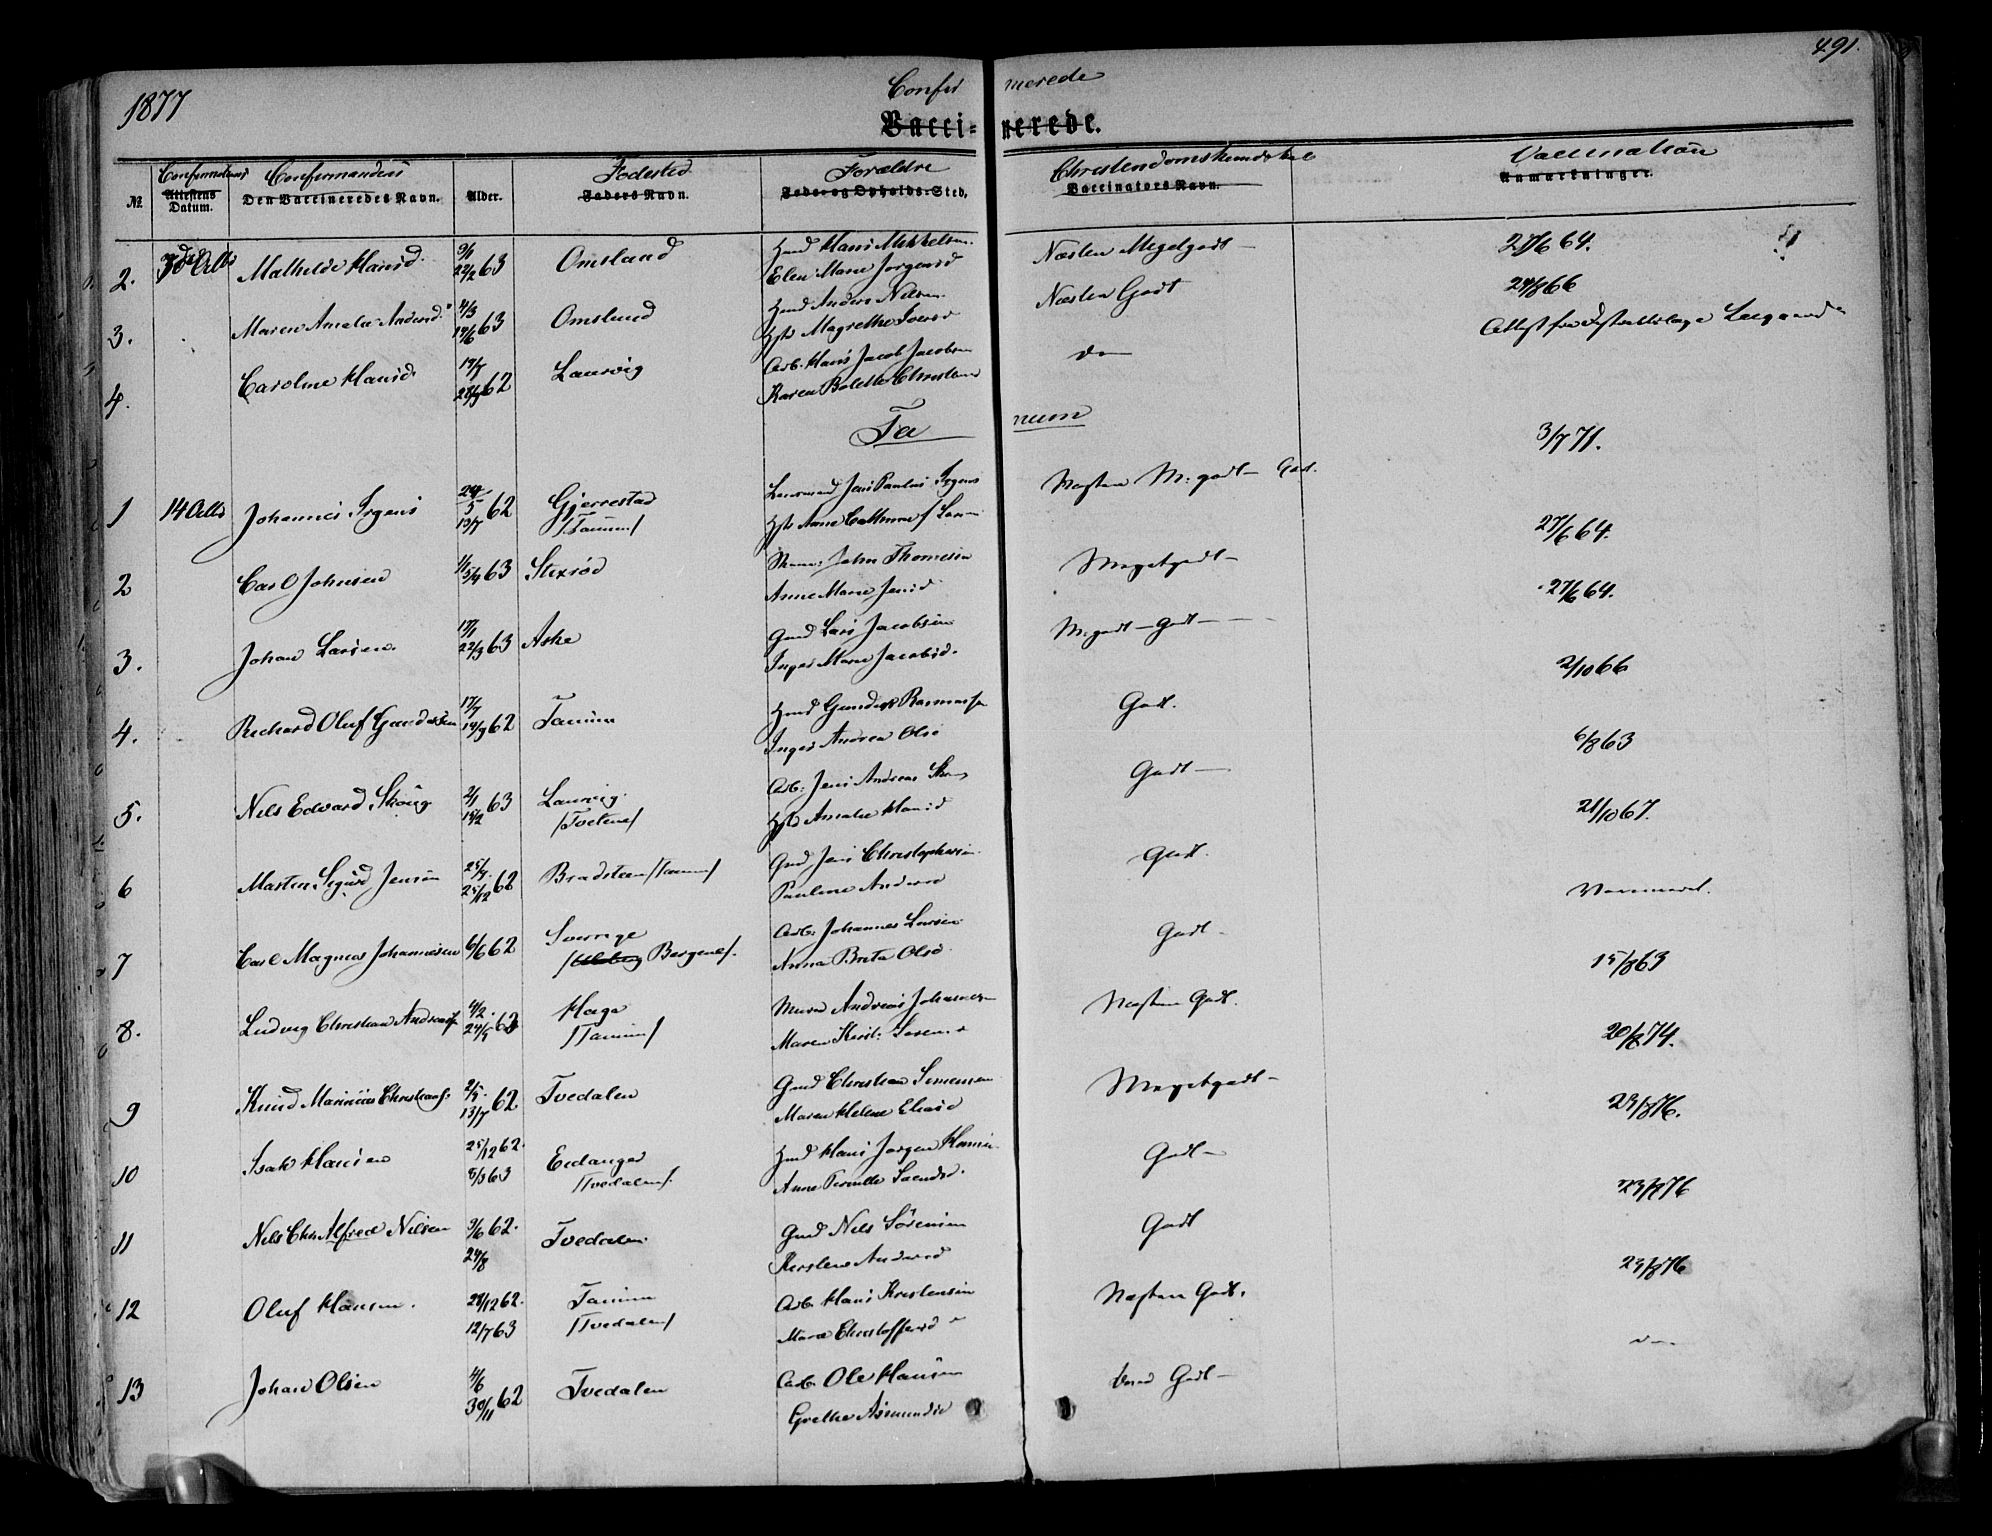 491.
1877
Confirmerede
Vaccinerede.
No.
Confirmations
Attestens Datum.
Confirmandens
Den Vaccineredes Navn.
Alder.
Fødested
Faders Navn.
Forældre
Føde- og Opholds-Sted.
Christendomskundskab
Vaccinators Navn.
Vaccination
Anmærkninger.
2. Mathilde Hansd. 9/1 22/2 63 Omsland Hmd Hans Mikkelsen Næsten Megetgodt 27/6 64.
Elen Marie Jørgensd
3. Maren Amalie Andersd. 4/3 14/6 63 Omslund Hmd Anders Nilsen Næsten Godt 24/8 66
Magrethe
4. Caroline Hansd. 19/7 28/9 62 Laurvig Arb. Hans Jacob Jacobsen do Attest fra
Karen Bolette
Tanum
1 14 Johannes Irgens 24/5 13/7 62 Gjerrestad Lensmand Jens Paulus Irgens Næsten M. godt Godt. 3/7 71.
/Tanum/ Anne Cathrine
2 Carl Johnsen 1/1 5/4 63 Stixrød John Thomesen Megetgodt 27/6 64.
Anne Marie Jensd
3. Johan Larsen 17/1 22/3 63 Aske Gmd Lars Jacobsen M. godt - godt 27/6 64.
Inger Marie Jacobsd.
4. Richard Oluf Gundersen 17/7 14/9 62 Tanum Hmd Gunder Rasmussen Godt. 2/10 66
Inger Andrea Olsd
5. Nils Edvard Skoug 2/1 15/2 63 Laurvig. Arb. Jens Andreas Skoug Godt 6/8 63
/Tvetene/ Amalie Hansd
6 Marten Sigurd Jensen 25/9. 25/12 62 Bradsteen /Tanum/ Gmd Jens Christophersen Godt. 21/10 67.
Pauline Andersd
7 Carl Magnus Johannesen 6/6 62 Sverrige Arb. Johannes Larsen Godt
/Bergene/. Anna Brita Olsd
8. Ludvig Christian Andreas 4/2. 24/5 62 Haga Murer Andreas Johannesen Næsten Godt. 15/8 63
/Tanum/ Maren Kirst.
9 Knud Marinius Christians. 2/5. 13/7 62 Tvedalen Gmd Christian Simensen Megetgodt 20/8 74.
Maren Helene Eliasd
10 Isak Hansen 25/12 62. 8/3 63 Eidanger Hmd Hans Jørgen Hansen Godt 23/8 76.
/Tvedalen/. Anne Pernille
11 Nils Chr. Alfred Nilsen 9/6 62. 24/8 Tvedalen. Gmd Nils Sørensen Godt 23/8 76
Kirstine Andersd
12 Oluf Hansen. 28/12 62. 12/7 63 Tanum Arb. Hans Kristensen Næsten Godt. 23/8 76
/Tvedalen/ Maria Christoffersd
13 Johan Olsen 4/6 30/11 62 Tvedalen Arb. Ole Hansen Godt
Grethe Asmundsd